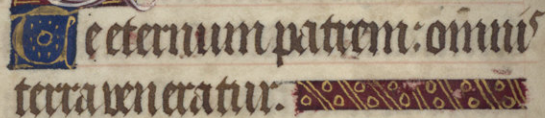 Te eternum patrem: omnis
terra veneratur.